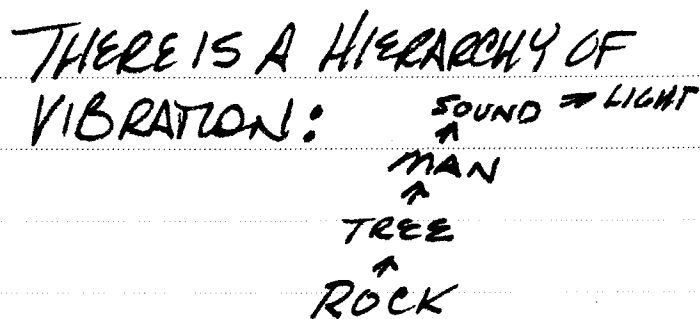 THERE IS A HIERARCHY OF
VIBRATION:
SOUND → LIGHT
↑
MAN
↑
TREE
↑
ROCK